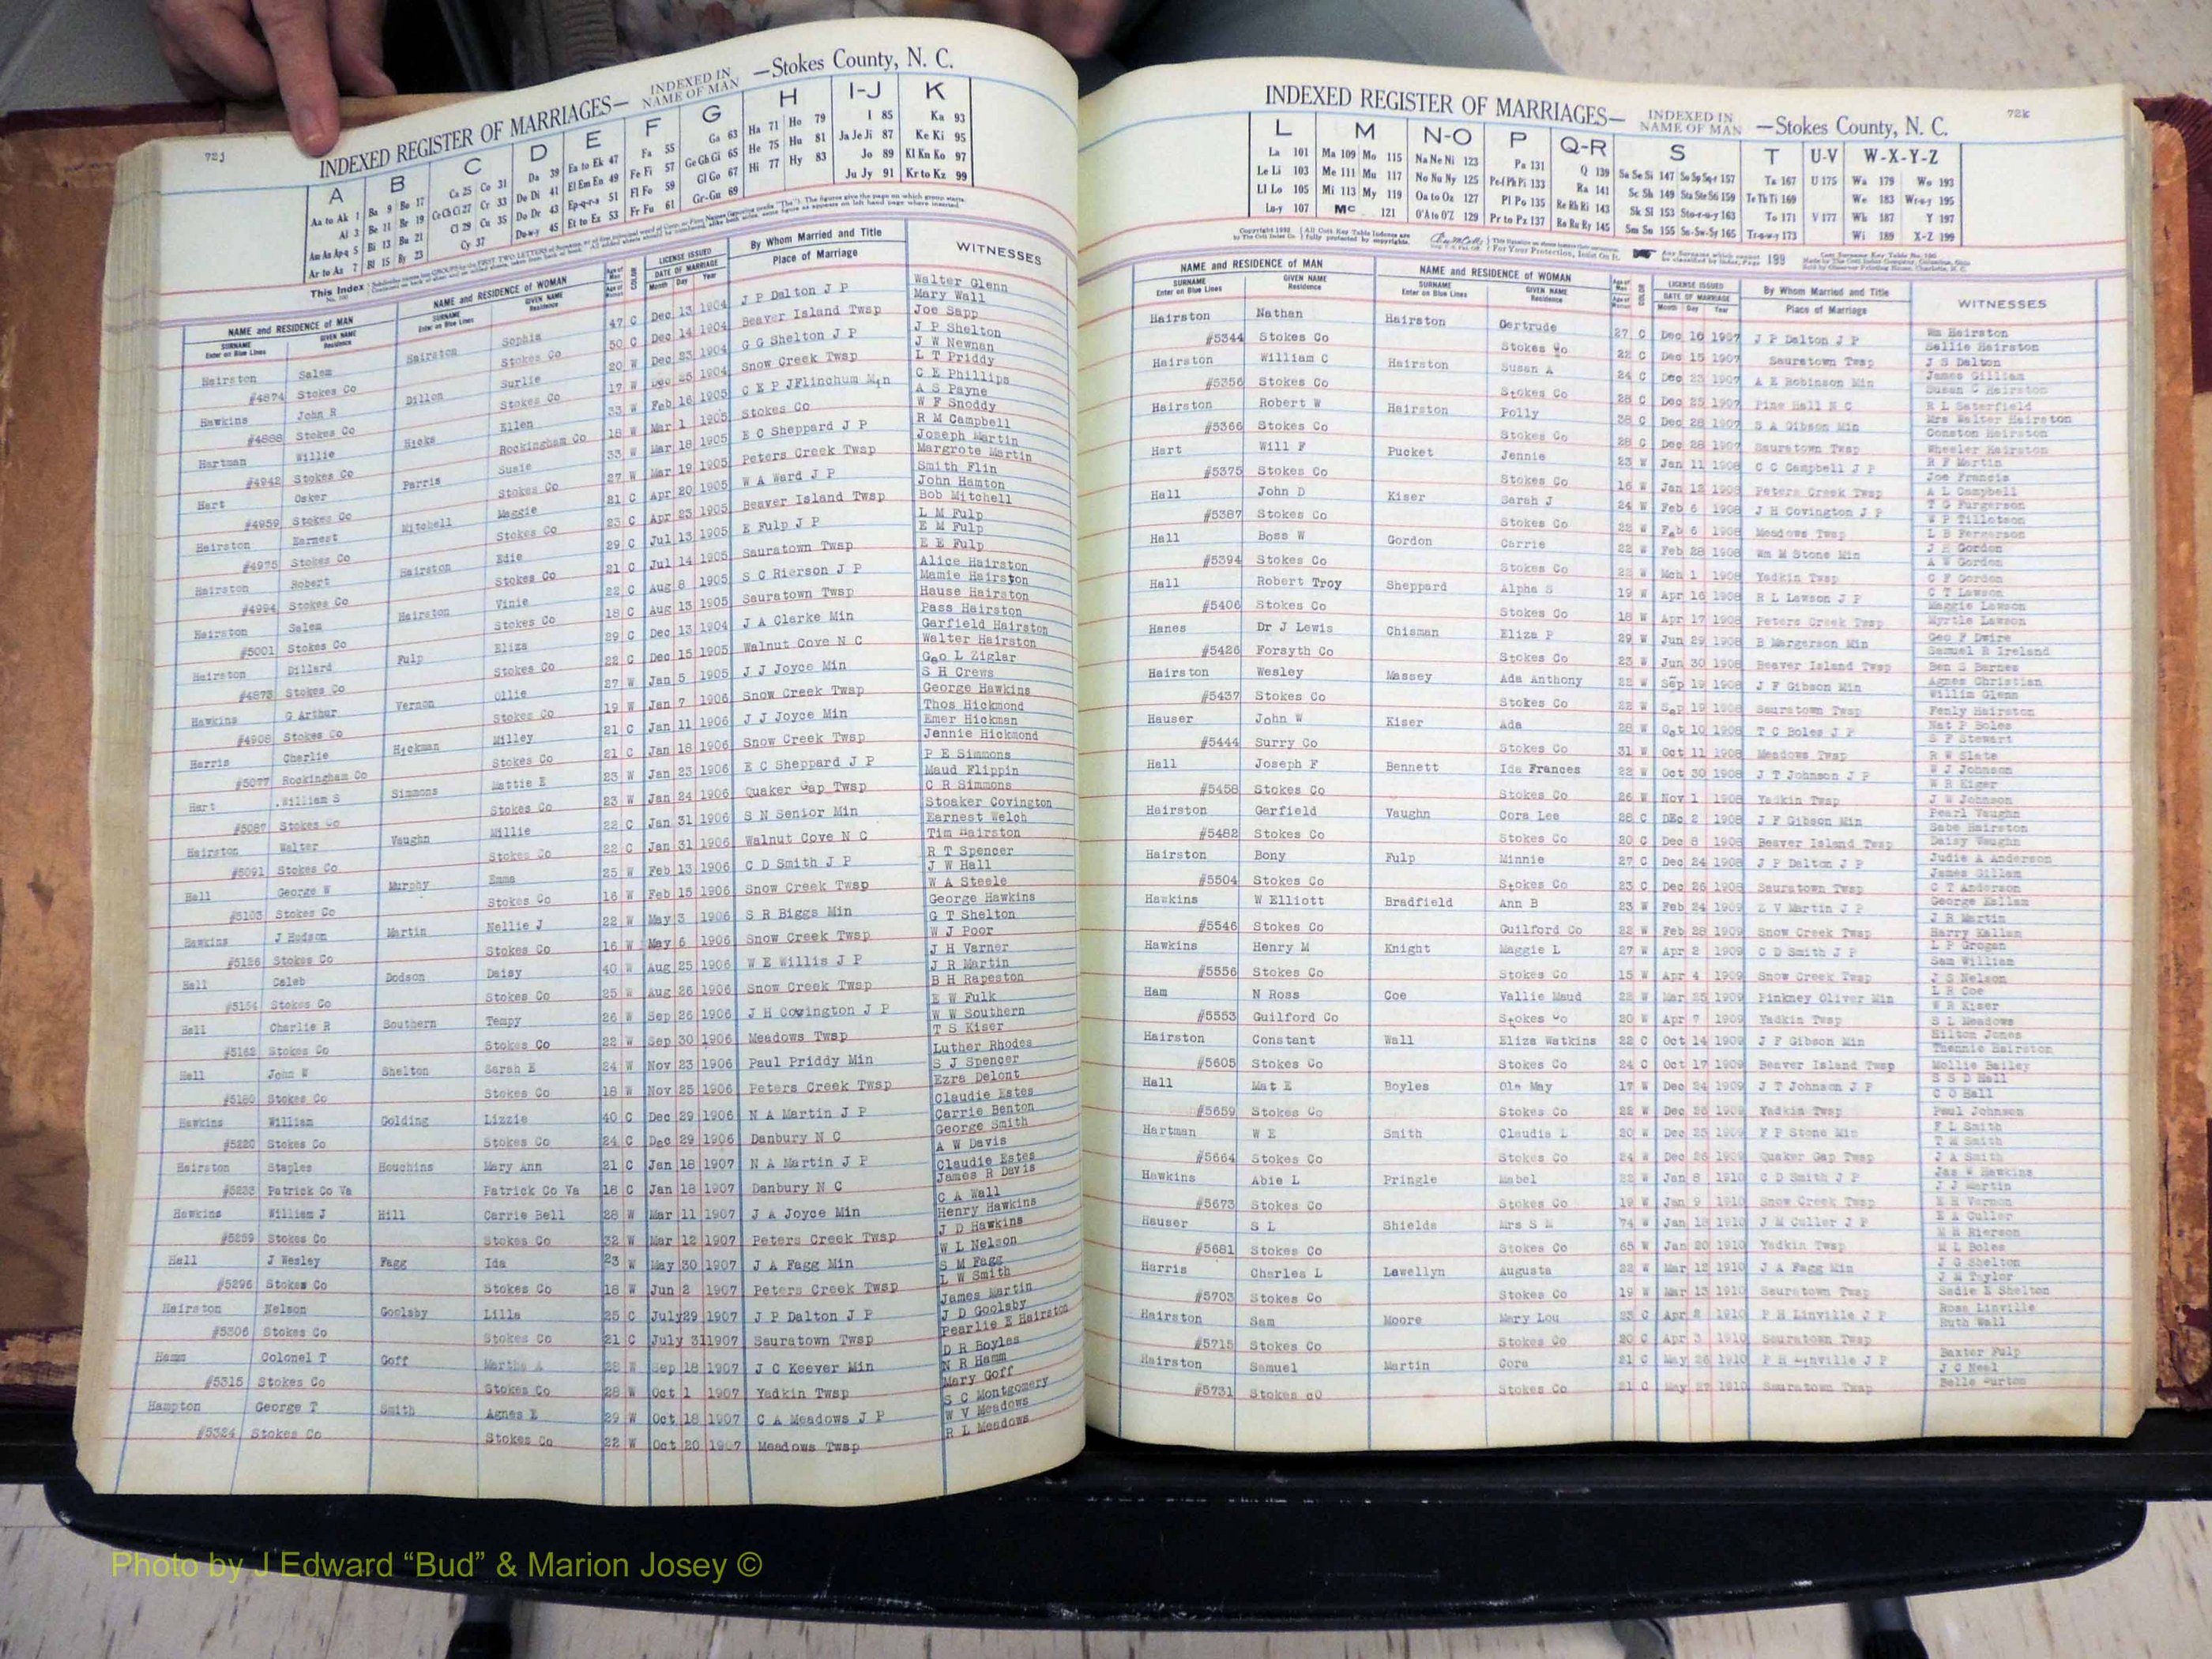 72j
INDEXED REGISTER OF MARRIAGES— INDEXED IN NAME OF MAN —Stokes County, N. C.
A B C D E F G H I-J K
Aa to Ak 1 Ba 9 Bo 17 Ca 25 Co 31 Da 39 Ea to Ek 47 Fa 55 Ga 63 Ha 71 Ho 79 I 85 Ka 93
Al 3 Be 11 Br 19 Ce Ch Ci 27 Cr 33 De Di 41 El Em En 49 Fe Fi 57 Ge Gh Gi 65 He 75 Hu 81 Ja Je Ji 87 Ke Ki 95
Am An Ap-q 5 Bi 13 Bu 21 Cl 29 Cu 35 Do Dr 43 Ep-q-r-s 51 Fl Fo 59 Gl Go 67 Hi 77 Hy 83 Jo 89 Kl Kn Ko 97
Ar to Az 7 Bl 15 By 23 Cy 37 Du-w-y 45 Et to Ez 53 Fr Fu 61 Gr-Gu 69 Ju Jy 91 Kr to Kz 99
NAME and RESIDENCE of MAN NAME and RESIDENCE of WOMAN LICENSE ISSUED By Whom Married and Title WITNESSES
SURNAME Enter on Blue Lines GIVEN NAME Residence SURNAME Enter on Blue Lines GIVEN NAME Residence COLOR DATE OF MARRIAGE Month Day Year Place of Marriage
Hairston Salem Hairston Sophia 47 C Dec 13 1904 J P Dalton J P Walter Glenn
Mary Wall
#4874 Stokes Co Stokes Co 50 C Dec 14 1904 Beaver Island Twsp Joe Sapp
Hawkins John R Dillon Surlie 20 W Dec 23 1904 G G Shelton J P J P Shelton
J W Newnan
#4888 Stokes Co Stokes Co 17 W Dec 25 1904 Snow Creek Twsp L T Priddy
Hartman Willie Hicks Ellen 33 W Feb 16 1905 C E P JFlinchum Min C E Phillips
A S Payne
#4942 Stokes Co Rockingham Co 18 W Mar 1 1905 Stokes Co W F Snoddy
Hart Osker Parris Susie 33 W Mar 18 1905 E C Sheppard J P R M Campbell
Joseph Martin
#4959 Stokes Co Stokes Co 27 W Mar 19 1905 Peters Creek Twsp Margrote Martin
Hairston Earnest Mitchell Maggie 21 C Apr 20 1905 W A Ward J P Smith Flin
John Hamton
#4975 Stokes Co Stokes Co 23 C Apr 23 1905 Beaver Island Twsp Bob Mitchell
Hairston Robert Hairston Edie 29 C Jul 13 1905 E Fulp J P L M Fulp
E M Fulp
#4994 Stokes Co Stokes Co 21 C Jul 14 1905 Sauratown Twsp E E Fulp
Hairston Salem Hairston Vinie 22 C Aug 8 1905 S C Rierson J P Alice Hairston
Mamie Hairston
#5001 Stokes Co Stokes Co 18 C Aug 13 1905 Sauratown Twsp Hause Hairston
Hairston Dillard Fulp Eliza 29 C Dec 13 1904 J A Clarke Min Pass Hairston
Garfield Hairston
#4873 Stokes Co Stokes Co 22 C Dec 15 1905 Walnut Cove N C Walter Hairston
Hawkins G Arthur Vernon Ollie 27 W Jan 5 1905 J J Joyce Min Geo L Ziglar
S H Crews
#4908 Stokes Co Stokes Co 19 W Jan 7 1906 Snow Creek Twsp George Hawkins
Harris Charlie Hickman Milley 21 C Jan 11 1906 J J Joyce Min Thos Hickmond
Emer Hickman
#5077 Rockingham Co Stokes Co 21 C Jan 18 1906 Snow Creek Twsp Jennie Hickmond
Hart .William S Simmons Mattie E 23 W Jan 23 1906 E C Sheppard J P P E Simmons
Maud Flippin
#5087 Stokes Co Stokes Co 23 W Jan 24 1906 Quaker Gap Twsp C R Simmons
Hairston Walter Vaughn Millie 22 C Jan 31 1906 S N Senior Min Stoaker Covington
Earnest Welch
#5091 Stokes Co Stokes Co 22 C Jan 31 1906 Walnut Cove N C Tim Hairston
Hall George W Murphy Emma 25 W Feb 13 1906 C D Smith J P R T Spencer
J W Hall
#5103 Stokes Co Stokes Co 16 W Feb 15 1906 Snow Creek Twsp W A Steele
Hawkins J Hudson Martin Nellie J 22 W May 3 1906 S R Biggs Min George Hawkins
G T Shelton
#5126 Stokes Co Stokes Co 16 W May 6 1906 Snow Creek Twsp W J Poor
Hall Caleb Dodson Daisy 40 W Aug 25 1906 W E Willis J P J H Varner
J R Martin
#5154 Stokes Co Stokes Co 25 W Aug 26 1906 Snow Creek Twsp B H Rapeston
Hall Charlie R Southern Tempy 26 W Sep 26 1906 J H Covington J P E W Fulk
W W Southern
#5162 Stokes Co Stokes Co 22 W Sep 30 1906 Meadows Twsp T S Kiser
Hall John W Shelton Sarah E 24 W Nov 23 1906 Paul Priddy Min Luther Rhodes
S J Spencer
#5180 Stokes Co Stokes Co 18 W Nov 25 1906 Peters Creek Twsp Ezra Delont
Hawkins William Golding Lizzie 40 C Dec 29 1906 N A Martin J P Claudie Estes
Carrie Benton
#5220 Stokes Co Stokes Co 24 C Dec 29 1906 Danbury N C George Smith
Hairston Staples Houchins Mary Ann 21 C Jan 18 1907 N A Martin J P A W Davis
Claudie Estes
#5233 Patrick Co Va Patrick Co Va 18 C Jan 18 1907 Danbury N C James R Davis
Hawkins William J Hill Carrie Bell 28 W Mar 11 1907 J A Joyce Min C A Wall
Henry Hawkins
#5259 Stokes Co Stokes Co 32 W Mar 12 1907 Peters Creek Twsp J D Hawkins
Hall J Wesley Fagg Ida 23 W May 30 1907 J A Fagg Min W L Nelson
S M Fagg
#5296 Stokes Co Stokes Co 18 W Jun 2 1907 Peters Creek Twsp L W Smith
Hairston Nelson Goolsby Lilla 25 C July29 1907 J P Dalton J P James Martin
J D Goolsby
#5306 Stokes Co Stokes Co 21 C July 31 1907 Sauratown Twsp Pearlie E Hairston
Hamm Colonel T Goff Martha A 28 W Sep 18 1907 J C Keever Min D R Boyles
N R Hamm
#5315 Stokes Co Stokes Co 28 W Oct 1 1907 Yadkin Twsp Mary Goff
Hampton George T Smith Agnes E 29 W Oct 18 1907 C A Meadows J P S C Montgomery
W V Meadows
#5324 Stokes Co Stokes Co 22 W Oct 20 1907 Meadows Twsp R L Meadows
72k
INDEXED REGISTER OF MARRIAGES— INDEXED IN NAME OF MAN —Stokes County, N. C.
L M N-O P Q-R S T U-V W-X-Y-Z
La 101 Ma 109 Mo 115 Na Ne Ni 123 Pa 131 Q 139 Sa Se Si 147 So Sp Sq-r 157 Ta 167 U 175 Wa 179 Wo 193
Le Li 103 Me 111 Mu 117 No Nu Ny 125 Pe-f Ph Pi 133 Ra 141 Sc Sh 149 Sta Ste Sti 159 Te Th Ti 169 We 183 Wr-u-y 195
Ll Lo 105 Mi 113 My 119 Oa to Oz 127 Pl Po 135 Re Rh Ri 143 Sk Sl 153 Sto-r-u-y 163 To 171 V 177 Wh 187 Y 197
Lu-y 107 Mc 121 O'A to O'Z 129 Pr to Pz 137 Ro Ru Ry 145 Sm Sn 155 Su-Sw-Sy 165 Tr-u-w-y 173 Wi 189 X-Z 199
NAME and RESIDENCE of MAN NAME and RESIDENCE of WOMAN LICENSE ISSUED By Whom Married and Title WITNESSES
SURNAME Enter on Blue Lines GIVEN NAME Residence SURNAME Enter on Blue Lines GIVEN NAME Residence DATE OF MARRIAGE Month Day Year Place of Marriage
Hairston Nathan Hairston Gertrude 27 C Dec 16 1907 J P Dalton J P Wm Hairston
Sallie Hairston
#5344 Stokes Co Stokes Co 22 C Dec 15 1907 Sauratown Twsp J S Dalton
Hairston William C Hairston Susan A 24 C Dec 23 1907 A E Robinson Min James Gilliam
Susan C Hairston
#5356 Stokes Co Stokes Co 28 C Dec 25 1907 Pine Hall N C R L Saterfield
Hairston Robert W Hairston Polly 38 C Dec 28 1907 S A Gibson Min Mrs Walter Hairston
Conston Hairston
#5366 Stokes Co Stokes Co 28 C Dec 28 1907 Sauratown Twsp Wheeler Hairston
Hart Will F Pucket Jennie 23 W Jan 11 1908 C C Campbell J P R F Martin
Joe Francis
#5375 Stokes Co Stokes Co 16 W Jan 12 1908 Peters Creek Twsp A L Campbell
Hall John D Kiser Sarah J 24 W Feb 6 1908 J H Covington J P T G Furgerson
W P Tillotson
#5387 Stokes Co Stokes Co 22 W Feb 6 1908 Meadows Twsp L B Fergerson
Hall Boss W Gordon Carrie 22 W Feb 28 1908 Wm M Stone Min J H Gordon
A W Gordon
#5394 Stokes Co Stokes Co 22 W Mch 1 1908 Yadkin Twsp C F Gordon
Hall Robert Troy Sheppard Alpha S 19 W Apr 16 1908 R L Lawson J P C T Lawson
Maggie Lawson
#5406 Stokes Co Stokes Co 18 W Apr 17 1908 Peters Creek Twsp Myrtle Lawson
Hanes Dr J Lewis Chisman Eliza P 29 W Jun 29 1908 B Margerson Min Geo F Dwire
Samuel R Ireland
#5426 Forsyth Co Stokes Co 23 W Jun 30 1908 Beaver Island Twsp Ben S Barnes
Hairston Wesley Massey Ada Anthony 22 W Sep 19 1908 J F Gibson Min Agnes Christian
Willim Glenn
#5437 Stokes Co Stokes Co 22 W Sep 19 1908 Sauratown Twsp Fenly Hairston
Hauser John W Kiser Ada 28 W Oct 10 1908 T C Boles J P Nat P Boles
S F Stewart
#5444 Surry Co Stokes Co 31 W Oct 11 1908 Meadows Twsp R W Slate
Hall Joseph F Bennett Ida Frances 22 W Oct 30 1908 J T Johnson J P W J Johnson
W R Kiger
#5458 Stokes Co Stokes Co 26 W Nov 1 1908 Yadkin Twsp J W Johnson
Hairston Garfield Vaughn Cora Lee 28 C DEc 2 1908 J F Gibson Min Pearl Vaughn
Sabe Hairston
#5482 Stokes Co Stokes Co 20 C Dec 8 1908 Beaver Island Twsp Daisy Vaughn
Hairston Bony Fulp Minnie 27 C Dec 24 1908 J P Dalton J P Judie A Anderson
James Gillam
#5504 Stokes Co Stokes Co 23 C Dec 26 1908 Sauratown Twsp C T Anderson
Hawkins W Elliott Bradfield Ann B 23 W Feb 24 1909 Z V Martin J P George Kallam
J R Martin
#5546 Stokes Co Guilford Co 22 W Feb 28 1909 Snow Creek Twsp Harry Kallam
Hawkins Henry M Knight Maggie L 27 W Apr 2 1909 C D Smith J P L P Grogan
Sam William
#5556 Stokes Co Stokes Co 15 W Apr 4 1909 Snow Creek Twsp J S Nelson
Ham N Ross Coe Vallie Maud 22 W Mar 25 1909 Pinkney Oliver Min L R Coe
W R Kiser
#5553 Guilford Co Stokes Co 20 W Apr 7 1909 Yadkin Twsp S L Meadows
Hairston Constant Wall Eliza Watkins 22 C Oct 14 1909 J F Gibson Min Hilton Jones
Thennie Hairston
#5605 Stokes Co Stokes Co 24 C Oct 17 1909 Beaver Island Twsp Mollie Bailey
Hall Mat E Boyles Ola May 17 W Dec 24 1909 J T Johnson J P S S D Hall
C O Hall
#5659 Stokes Co Stokes Co 22 W Dec 26 1909 Yadkin Twsp Paul Johnson
Hartman W E Smith Claudia L 20 W Dec 25 1909 F P Stone Min F L Smith
T M Smith
#5664 Stokes Co Stokes Co 24 W Dec 26 1909 Quaker Gap Twsp J A Smith
Hawkins Abie L Pringle Mabel 22 W Jan 8 1910 C D Smith J P Jas W Hawkins
J J Martin
#5673 Stokes Co Stokes Co 19 W Jan 9 1910 Snow Creek Twsp E H Vernon
Hauser S L Shields Mrs S M 74 W Jan 18 1910 J M Culler J P E A Culler
M H Rierson
#5681 Stokes Co Stokes Co 65 W Jan 20 1910 Yadkin Twsp M L Boles
Harris Charles L Lewellyn Augusta 22 W Mar 12 1910 J A Fagg Min J G Shelton
J M Taylor
#5703 Stokes Co Stokes Co 19 W Mar 13 1910 Sauratown Twsp Sadie E Shelton
Hairston Sam Moore Mary Lou 23 C Apr 2 1910 P H Linville J P Rosa Linville
Ruth Wall
#5715 Stokes Co Stokes Co 20 C Apr 3 1910 Sauratown Twsp
Hairston Samuel Martin Cora 21 C May 26 1910 P H Linville J P Baxter Fulp
J C Neal
#5731 Stokes cO Stokes Co 21 C May 27 1910 Sauratown Twsp Belle Burton
Photo by J Edward “Bud” & Marion Josey ©